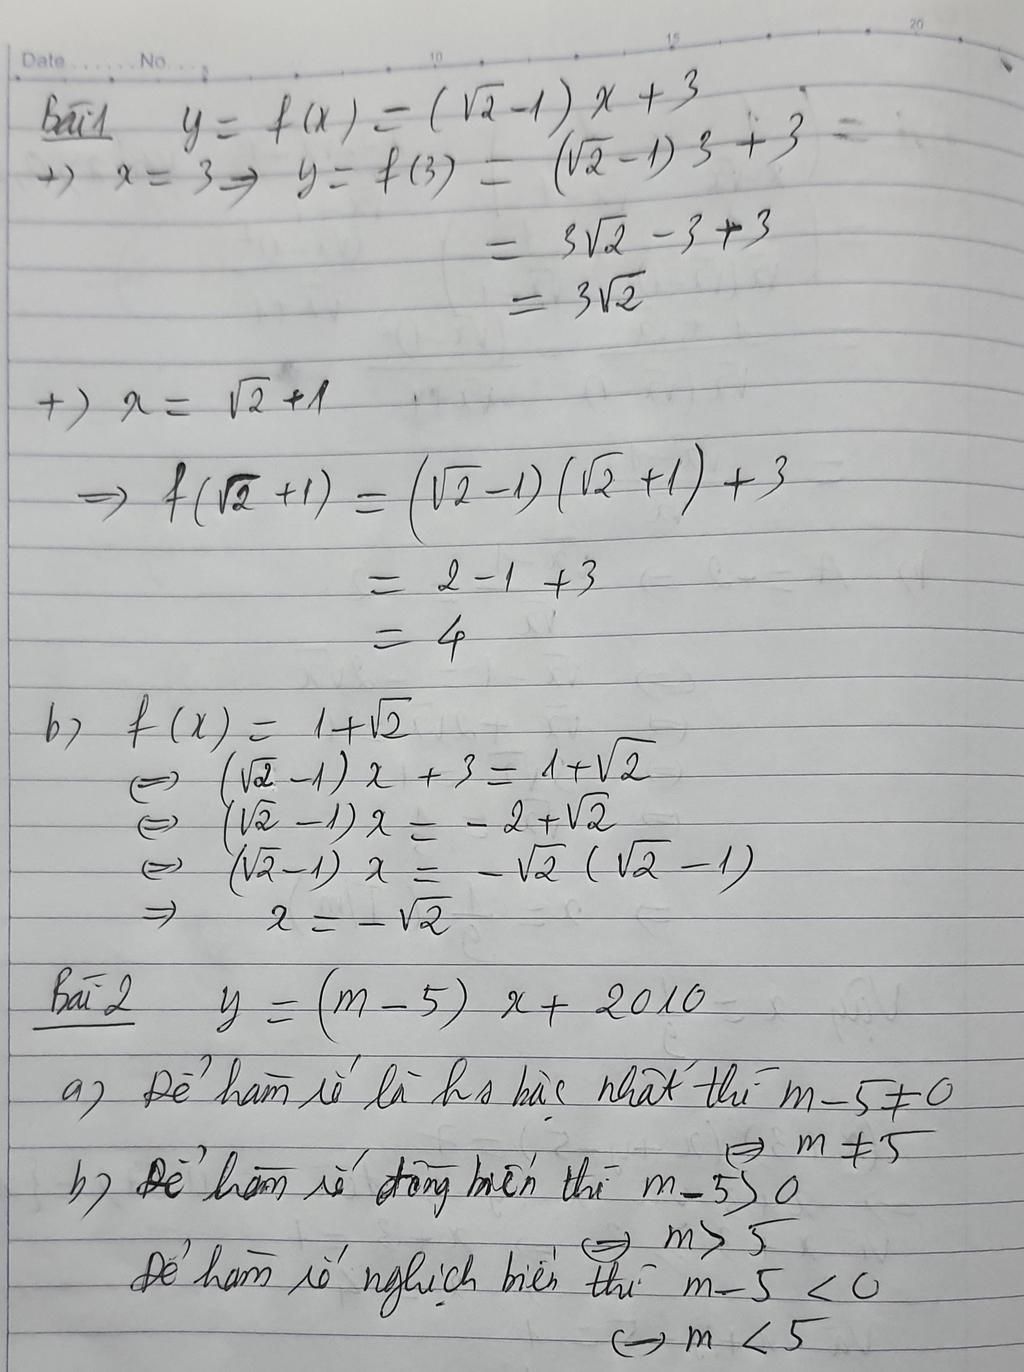 Date ...... No. ...
10 15 20
Bài 1 y = f(x) = (√2 - 1) x + 3
+) x = 3 => y = f(3) = (√2 - 1) 3 + 3 =
= 3√2 - 3 + 3
= 3√2
+) x = √2 + 1
=> f(√2 + 1) = (√2 - 1)(√2 + 1) + 3
= 2 - 1 + 3
= 4
b) f(x) = 1 + √2
<=> (√2 - 1) x + 3 = 1 + √2
<=> (√2 - 1) x = - 2 + √2
<=> (√2 - 1) x = - √2 (√2 - 1)
=> x = - √2
Bài 2 y = (m - 5) x + 2010
a) Để hàm số là hs bậc nhất thì m - 5 ≠ 0
<=> m ≠ 5
b) Để hàm số đồng biến thì m - 5 > 0
<=> m > 5
Để hàm số nghịch biến thì m - 5 < 0
<=> m < 5